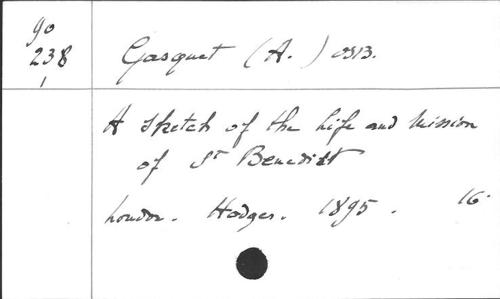 90
238
1
Gasquet (A.) OSB.
A Sketch of the Life and Mission
of St Benedict
London. Hodges. 1895. 16°